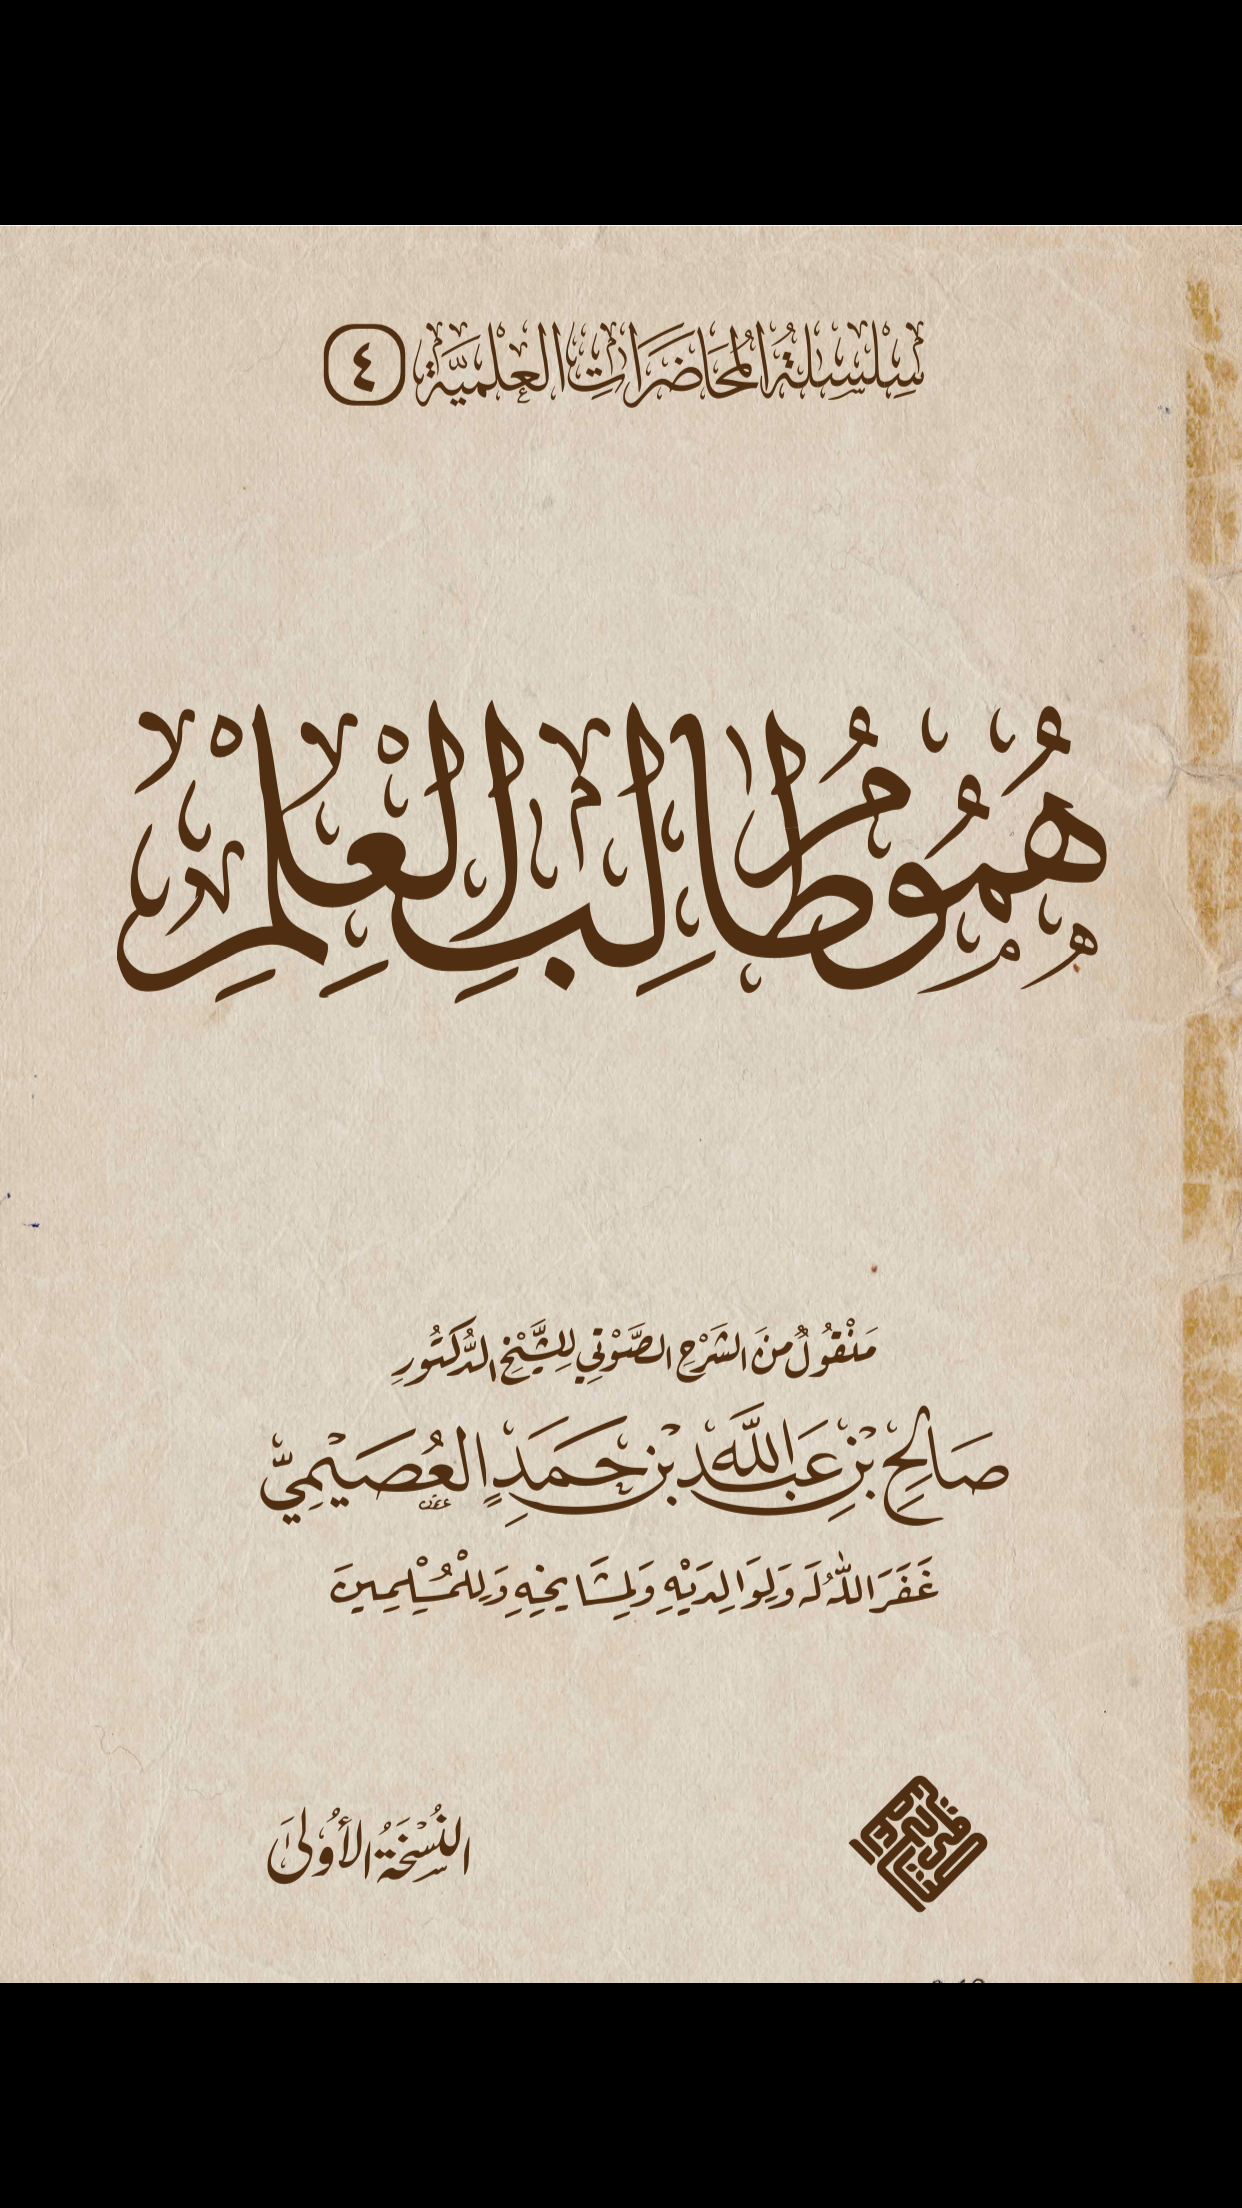 سِلْسِلَةُ المُحَاضَرَاتِ العِلْمِيَّةِ ٤
هُمُومُ طَالِبِ الْعِلْمِ
مَنْقُولٌ مِنَ الشَّرْحِ الصَّوْتِيِّ لِلشَّيْخِ الدُّكْتُورِ
صَالِحِ بْنِ عَبْدِ اللَّهِ بْنِ حَمَدٍ العُصَيْمِيِّ
غَفَرَ اللَّهُ لَهُ وَلِوَالِدَيْهِ وَلِمَشَايِخِهِ وَلِلْمُسْلِمِينَ
النُّسْخَةُ الأُولَى